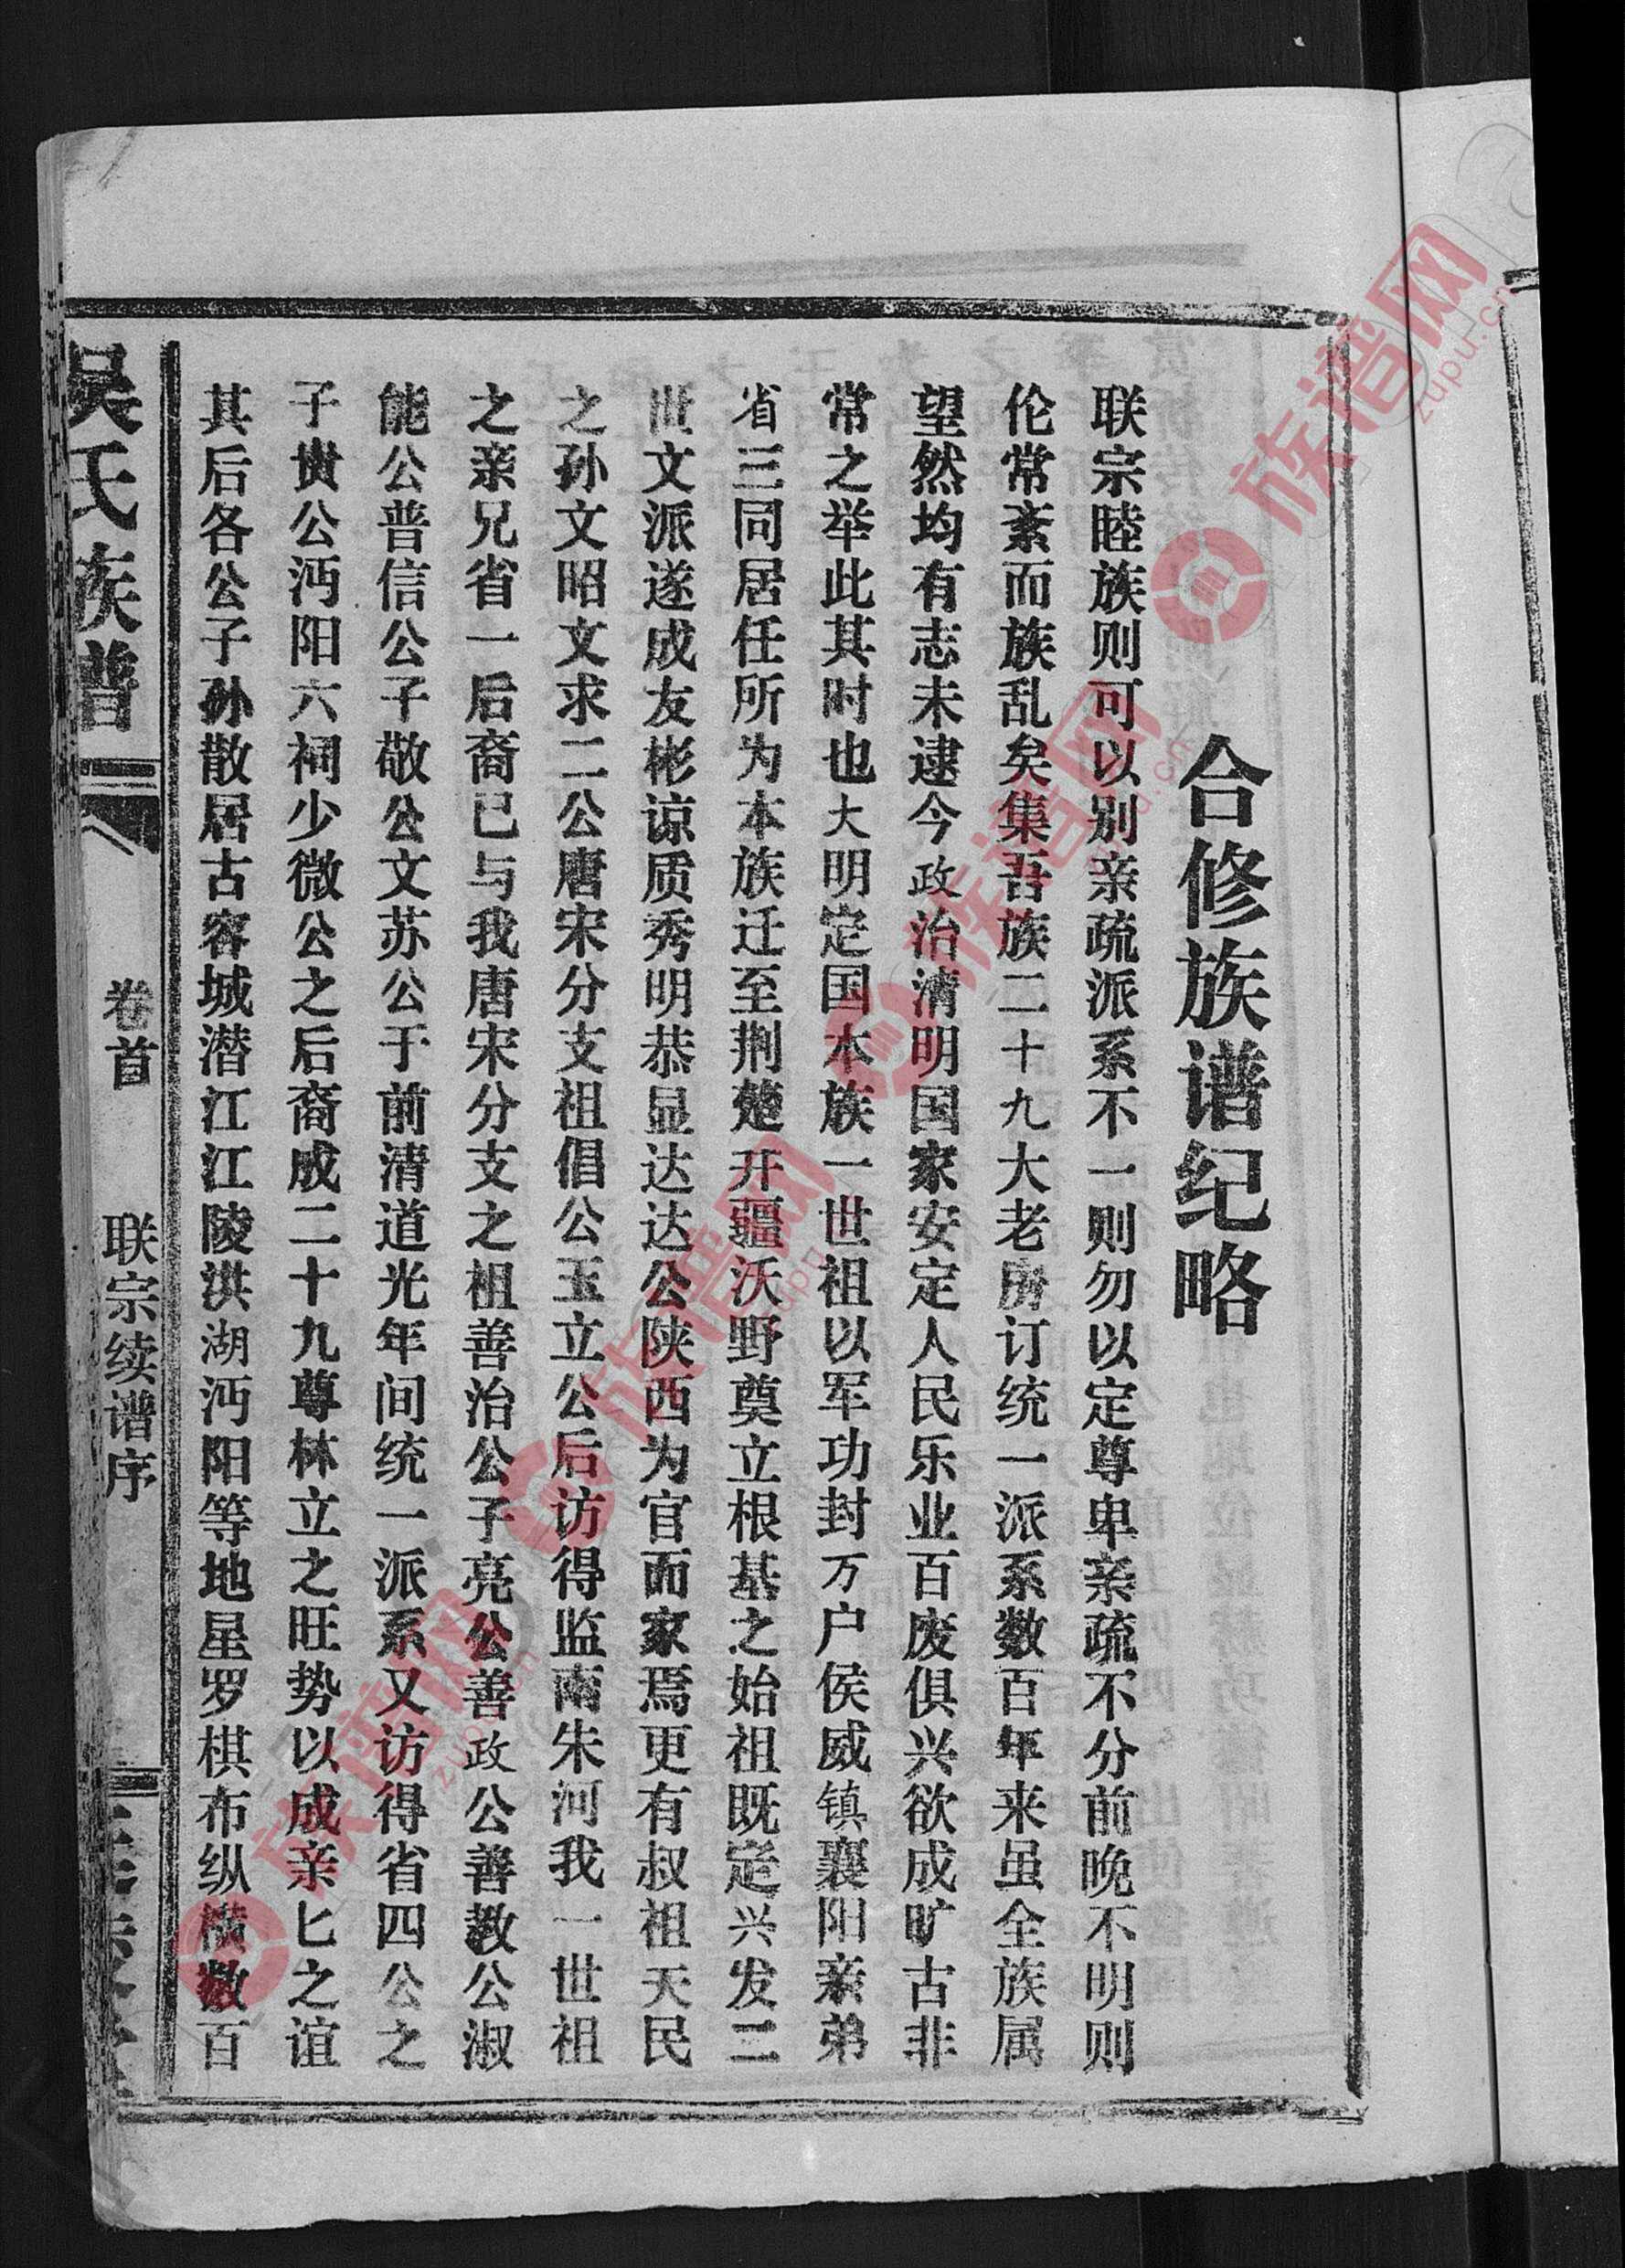 合修族谱纪略
联宗睦族则可以别亲疏派系不一则勿以定尊卑亲疏不分前晚不明则
伦常紊而族乱矣集吾族二十九大老房订统一派系数百年来虽全族属
望然均有志未逮今政治清明国家安定人民乐业百废俱兴欲成旷古非
常之举此其时也大明定国本族一世祖以军功封万户侯威镇襄阳亲弟
省三同居任所为本族迁至荆楚开疆沃野奠立根基之始祖既定兴发二
世文派遂成友彬谅质秀明恭显达达公陕西为官而家焉更有叔祖天民
之孙文昭文求二公唐宋分支祖倡公玉立公后访得监南朱河我一世祖
之亲兄省一后裔已与我唐宋分支之祖善治公子亮公善政公善教公淑
能公普信公子敬公文苏公于前清道光年间统一派系又访得省四公之
子贵公沔阳六祠少微公之后裔成二十九尊林立之旺势以成亲匕之谊
其后各公子孙散居古容城潜江江陵洪湖沔阳等地星罗棋布纵横数百
吴氏族谱
卷首
联宗续谱序
族谱网
zupu.cn